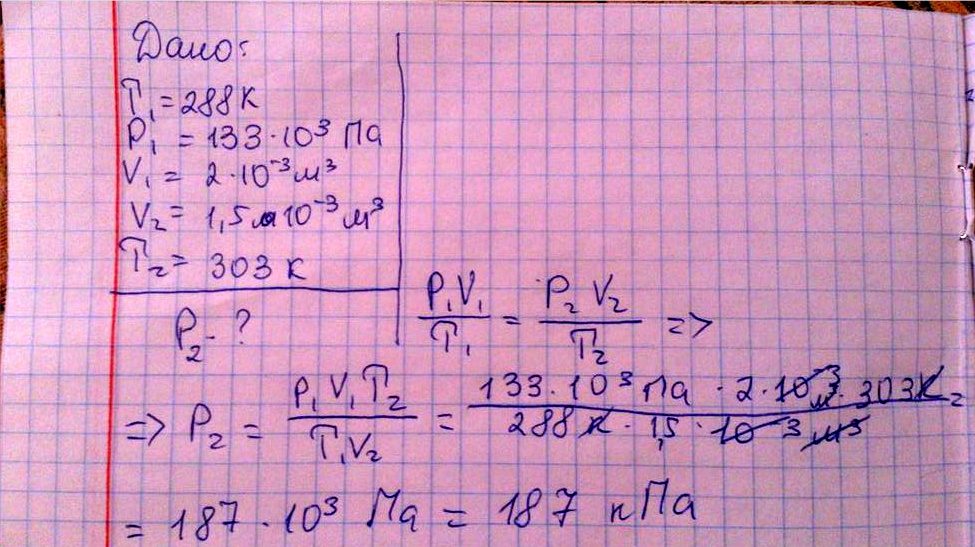 Дано:
T₁ = 288 К
P₁ = 133·10³ Па
V₁ = 2·10⁻³ м³
V₂ = 1,5 л 10⁻³ м³
T₂ = 303 К
P₂ - ?
P₁V₁/T₁ = P₂V₂/T₂ =>
=> P₂ = P₁V₁T₂/T₁V₂ = 133·10³ Па · 2·10⁻³ м³ · 303 К / 288 К · 1,5 · 10⁻³ м³ =
= 187·10³ Па = 187 кПа